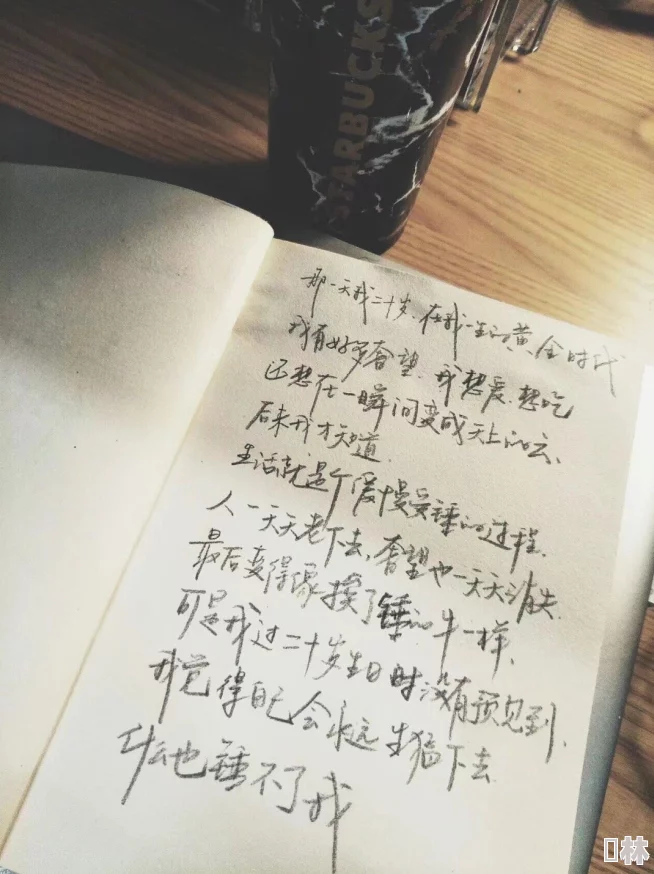 STARBUCKS
那一天我二十岁.在我一生的黄金时代
我有好多奢望.我想爱.想吃
还想在一瞬间变成天上的云、
后来我才知道.
生活就是个缓慢受锤的过程.
人一天天老下去、奢望也一天天消失.
最后变得像挨了锤的牛一样、
可是我过二十岁生日时没有预见到.
我觉得自己会永远生猛下去.
什么也锤不了我
林